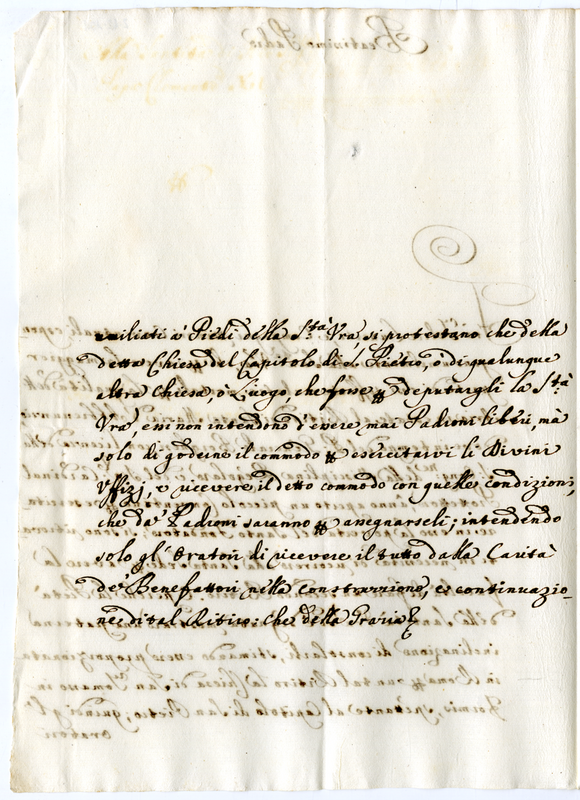 umiliati a' Piedi della S.tà Vrã si protestano che della
detta Chiesa del Capitolo di S. Pietro, ò di qualunque
altra Chiesa, ò Luogo, che fosse p deputargli la S.tà
Vrã, essi non intendono d'essere mai Padroni liberi, mà
solo di goderne il commodo p esercitarvi li Divini
Uffizj, e ricevere il detto commodo con quelle condizioni,
che da' Padroni saranno p assegnarseli; intendendo
solo gl'Oratori di ricevere il tutto dalla Carità
de' Benefattori nella construzione, e continuazio-
ne di tal Ritiro: che della Grazia